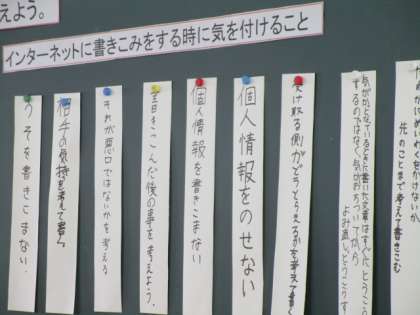 えよう。
インターネットに書きこみをする時に気を付けること
先のことまで考えて書きこむ
するのではなく気がおちついてから
受け取る側がどうとらえるかを考えて書く
個人情報をのせない
個人情報を書きこまない
書きこんだ後の事を考えよう。
それが悪口ではないかを考える
相手の気持を考えて書く
うそを書きこまない。